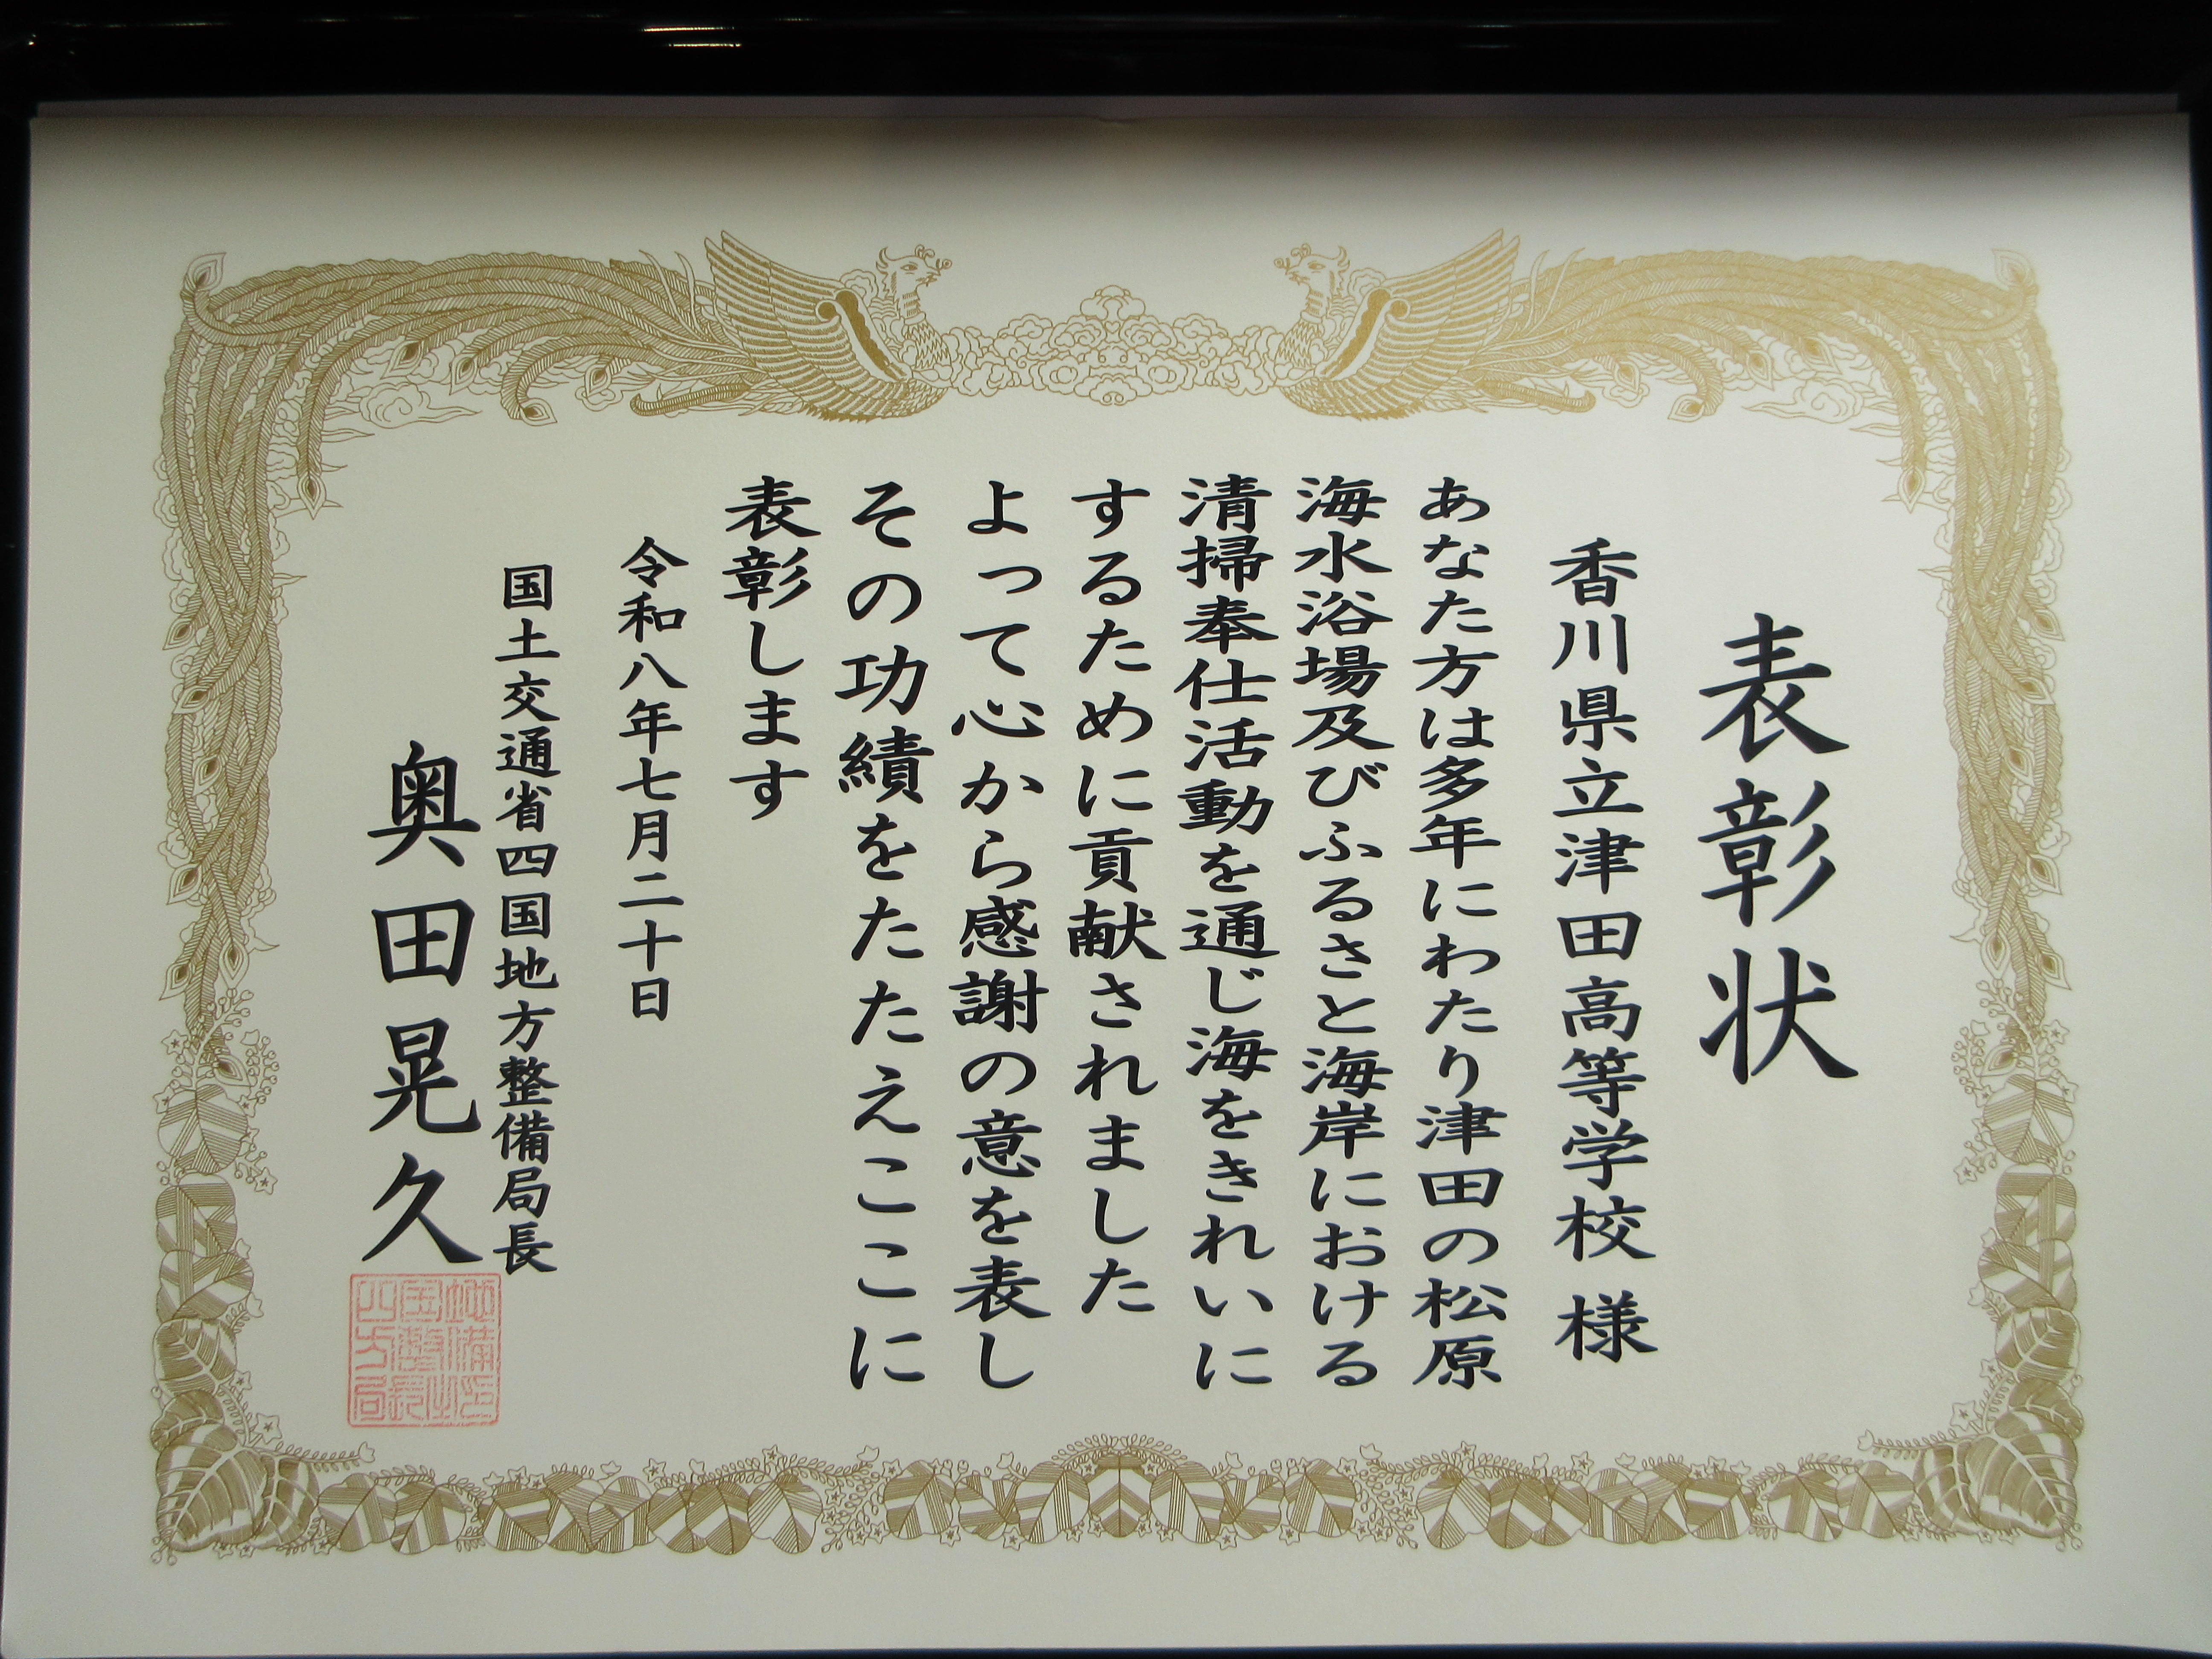 表彰状
香川県立津田高等学校 様
あなた方は多年にわたり津田の松原
海水浴場及びふるさと海岸における
清掃奉仕活動を通じ海をきれいに
するために貢献されました
よって心から感謝の意を表し
その功績をたたえここに
表彰します
令和八年七月二十日
国土交通省四国地方整備局長
奥田晃久